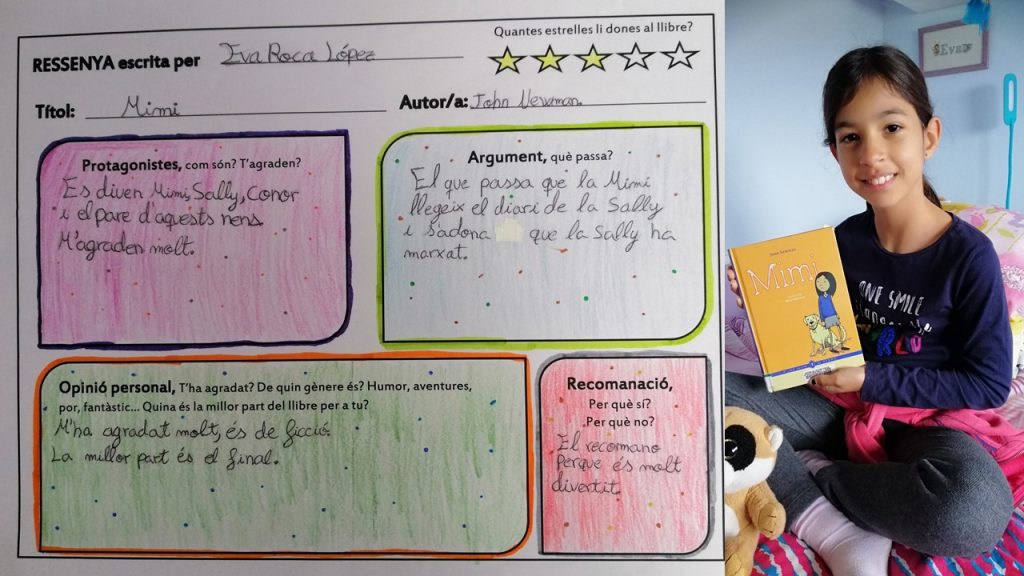 Quantes estrelles li dones al llibre?
RESSENYA escrita per Eva Roca López
Títol: Mimi
Autor/a: John Newman.
Protagonistes, com són? T'agraden?
Es diven Mimi, Sally, Conor
i el pare d'aquests nens.
M'agraden molt.
Argument, què passa?
El que passa que la Mimi
llegeix el diari de la Sally
i s'adona que la Sally ha
marxat.
Opinió personal, T'ha agradat? De quin gènere és? Humor, aventures,
por, fantàstic... Quina és la millor part del llibre per a tu?
M'ha agradat molt, és de ficció.
La millor part és el final.
Recomanació,
Per què sí?
Per què no?
El recomano
perque és molt
divertit.
Eva
Mimi
ONE SMILE